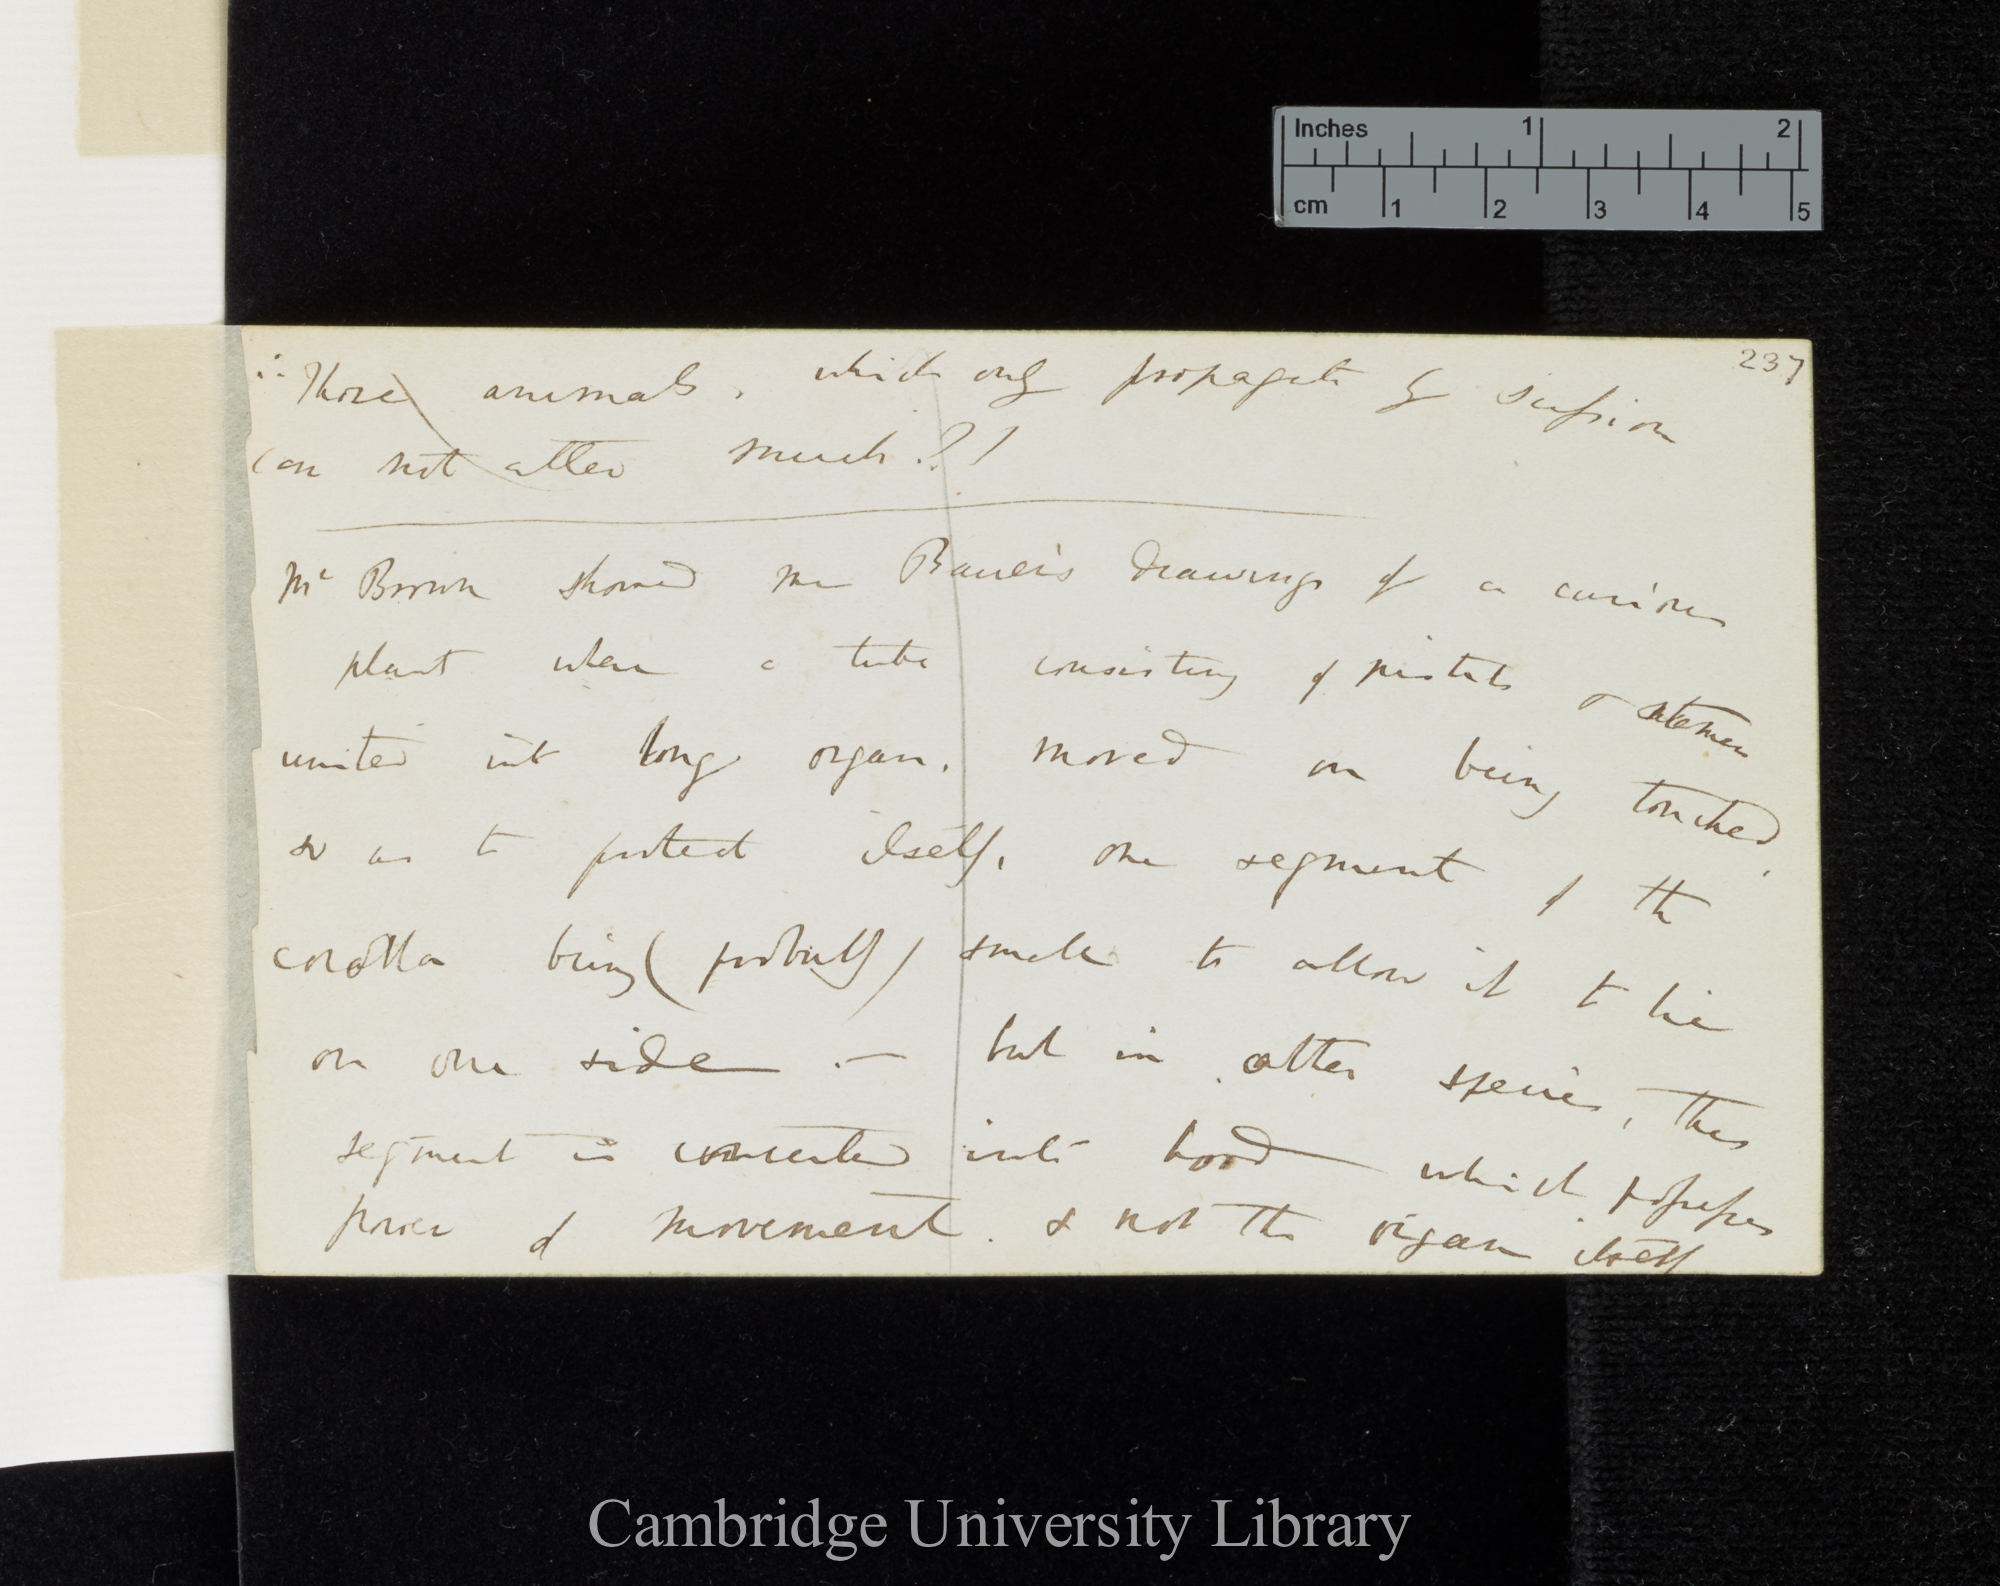 Inches 1 2
cm 1 2 3 4 5
237
∴ Those animals, which only propagate by scission
can not alter much?!
Mr Brown showed me Bauer's drawings of a curious
plant where a tube consisting of pistils & stamen
united into long organ, moved on being touched,
so as to protect itself, one segment of the
corolla being (probably) small to allow it to lie
on one side .— but in other species, this
segment is converted into hood which possesses
power of movement. & not the organ itself
Cambridge University Library